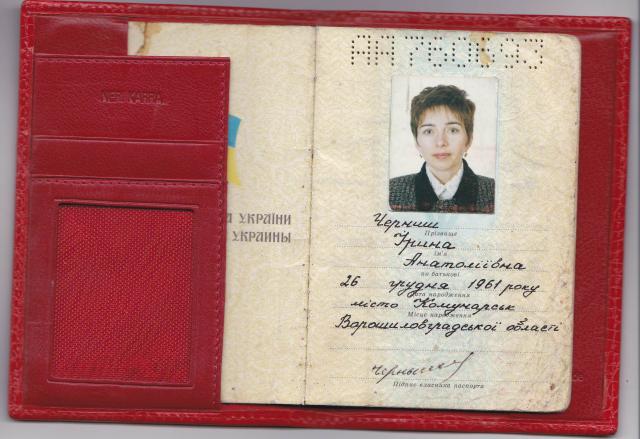 NERI KARRA
А УКРАЇНИ
УКРАИНЫ
АА760693
Черниш
Прізвище
Ірина
ім'я
Анатоліївна
по батькові
26 грудня 1961 року
Дата народження
місто Комунарськ
Місце народження
Ворошиловградської області
Підпис власника паспорта